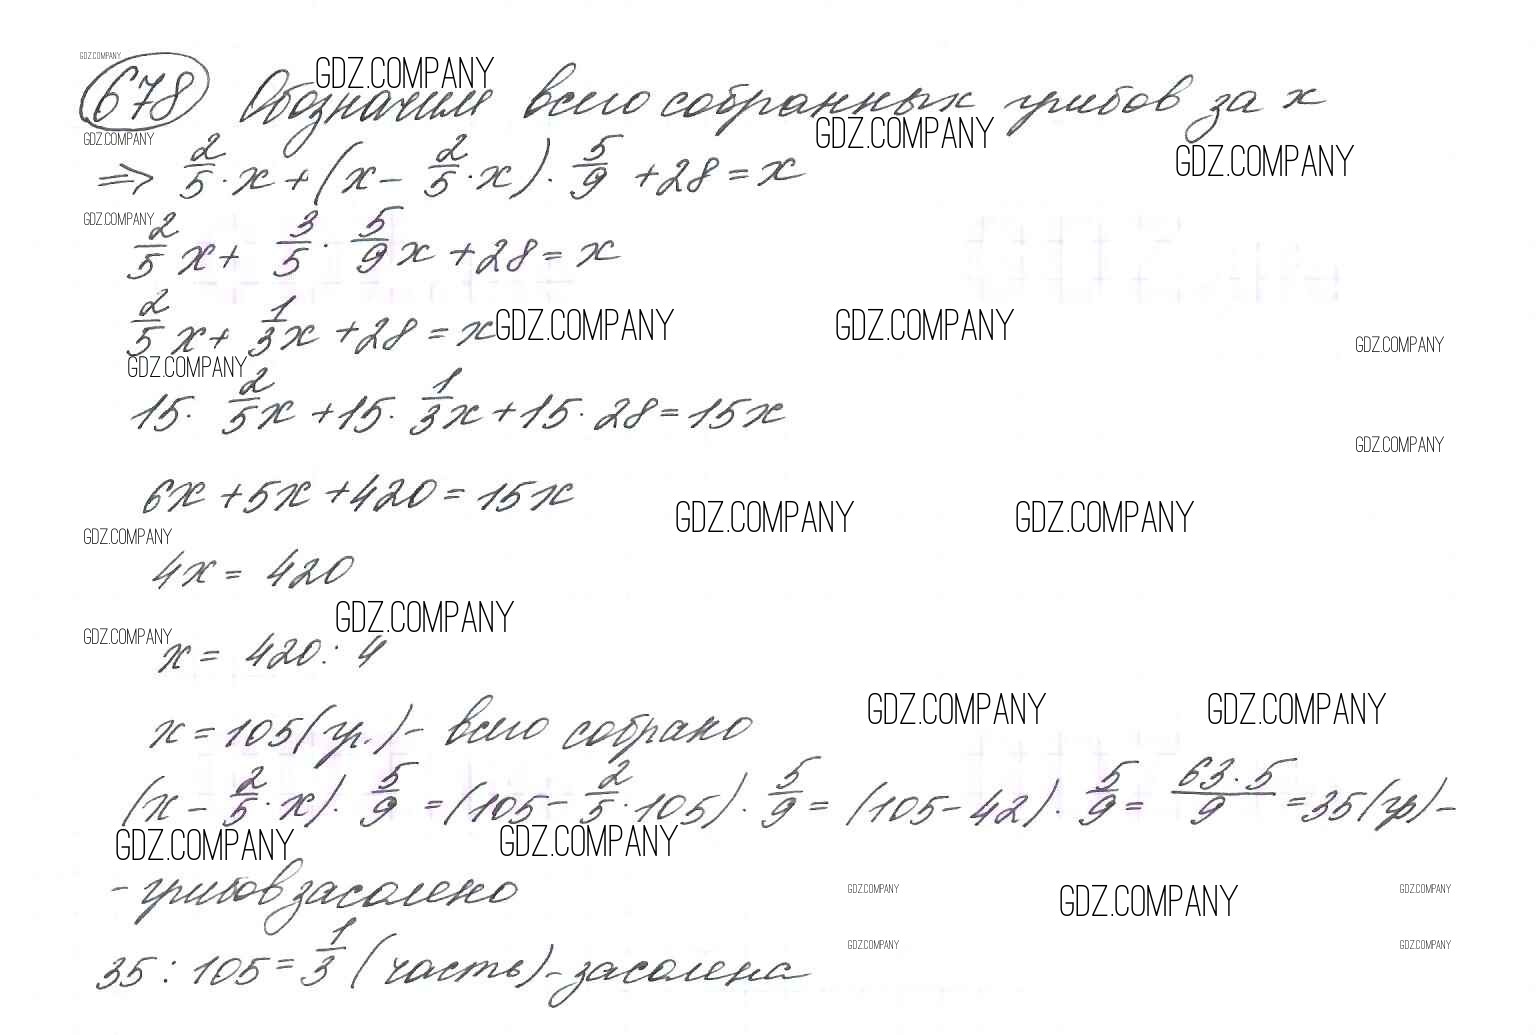 GDZ.COMPANY
678 Обозначим всего собранных грибов за x
GDZ.COMPANY
GDZ.COMPANY
GDZ.COMPANY
GDZ.COMPANY
=> 2/5 · x + (x - 2/5 · x) · 5/9 + 28 = x
GDZ.COMPANY
2/5 x + 3/5 · 5/9 x + 28 = x
2/5 x + 1/3 x + 28 = x
GDZ.COMPANY
GDZ.COMPANY
GDZ.COMPANY
GDZ.COMPANY
15 · 2/5 x + 15 · 1/3 x + 15 · 28 = 15x
GDZ.COMPANY
6x + 5x + 420 = 15x
GDZ.COMPANY
GDZ.COMPANY
GDZ.COMPANY
4x = 420
GDZ.COMPANY
GDZ.COMPANY
x = 420 : 4
GDZ.COMPANY
GDZ.COMPANY
x = 105 (гр.) - всего собрано
(x - 2/5 · x) · 5/9 = (105 - 2/5 · 105) · 5/9 = (105 - 42) · 5/9 = 63 · 5/9 = 35 (гр) -
GDZ.COMPANY
GDZ.COMPANY
- грибов засолено
GDZ.COMPANY
GDZ.COMPANY
GDZ.COMPANY
GDZ.COMPANY
GDZ.COMPANY
35 : 105 = 1/3 (часть) - засолена